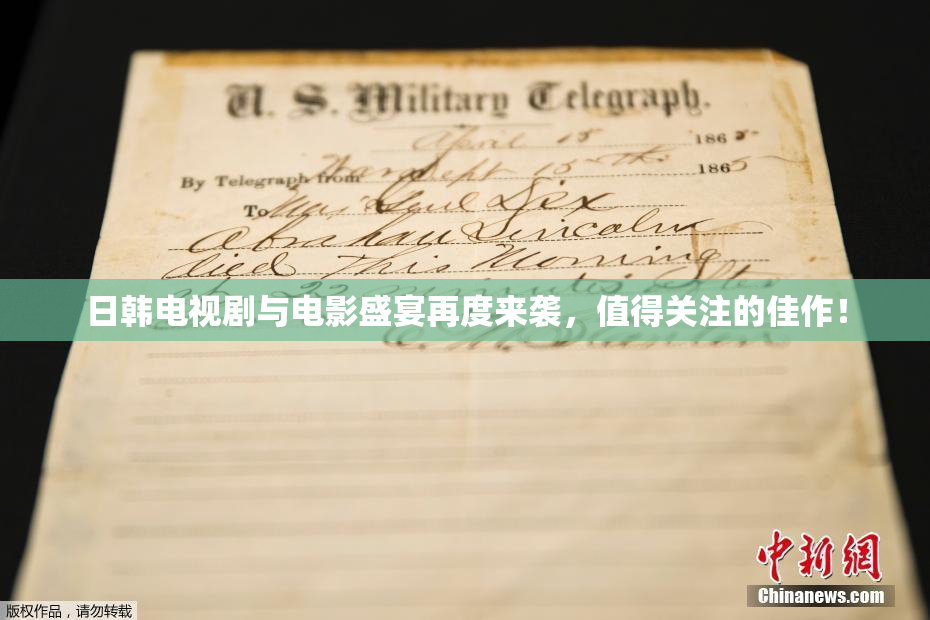 U. S. Military Telegraph.
April 15 1865
By Telegraph from War Dept 15th 1865
To Maj Genl Dix
Abraham Lincoln
died This Morning
at 22 minutes after
日韩电视剧与电影盛宴再度来袭，值得关注的佳作！
E. M. Stanton
中新网
Chinanews.com
版权作品，请勿转载